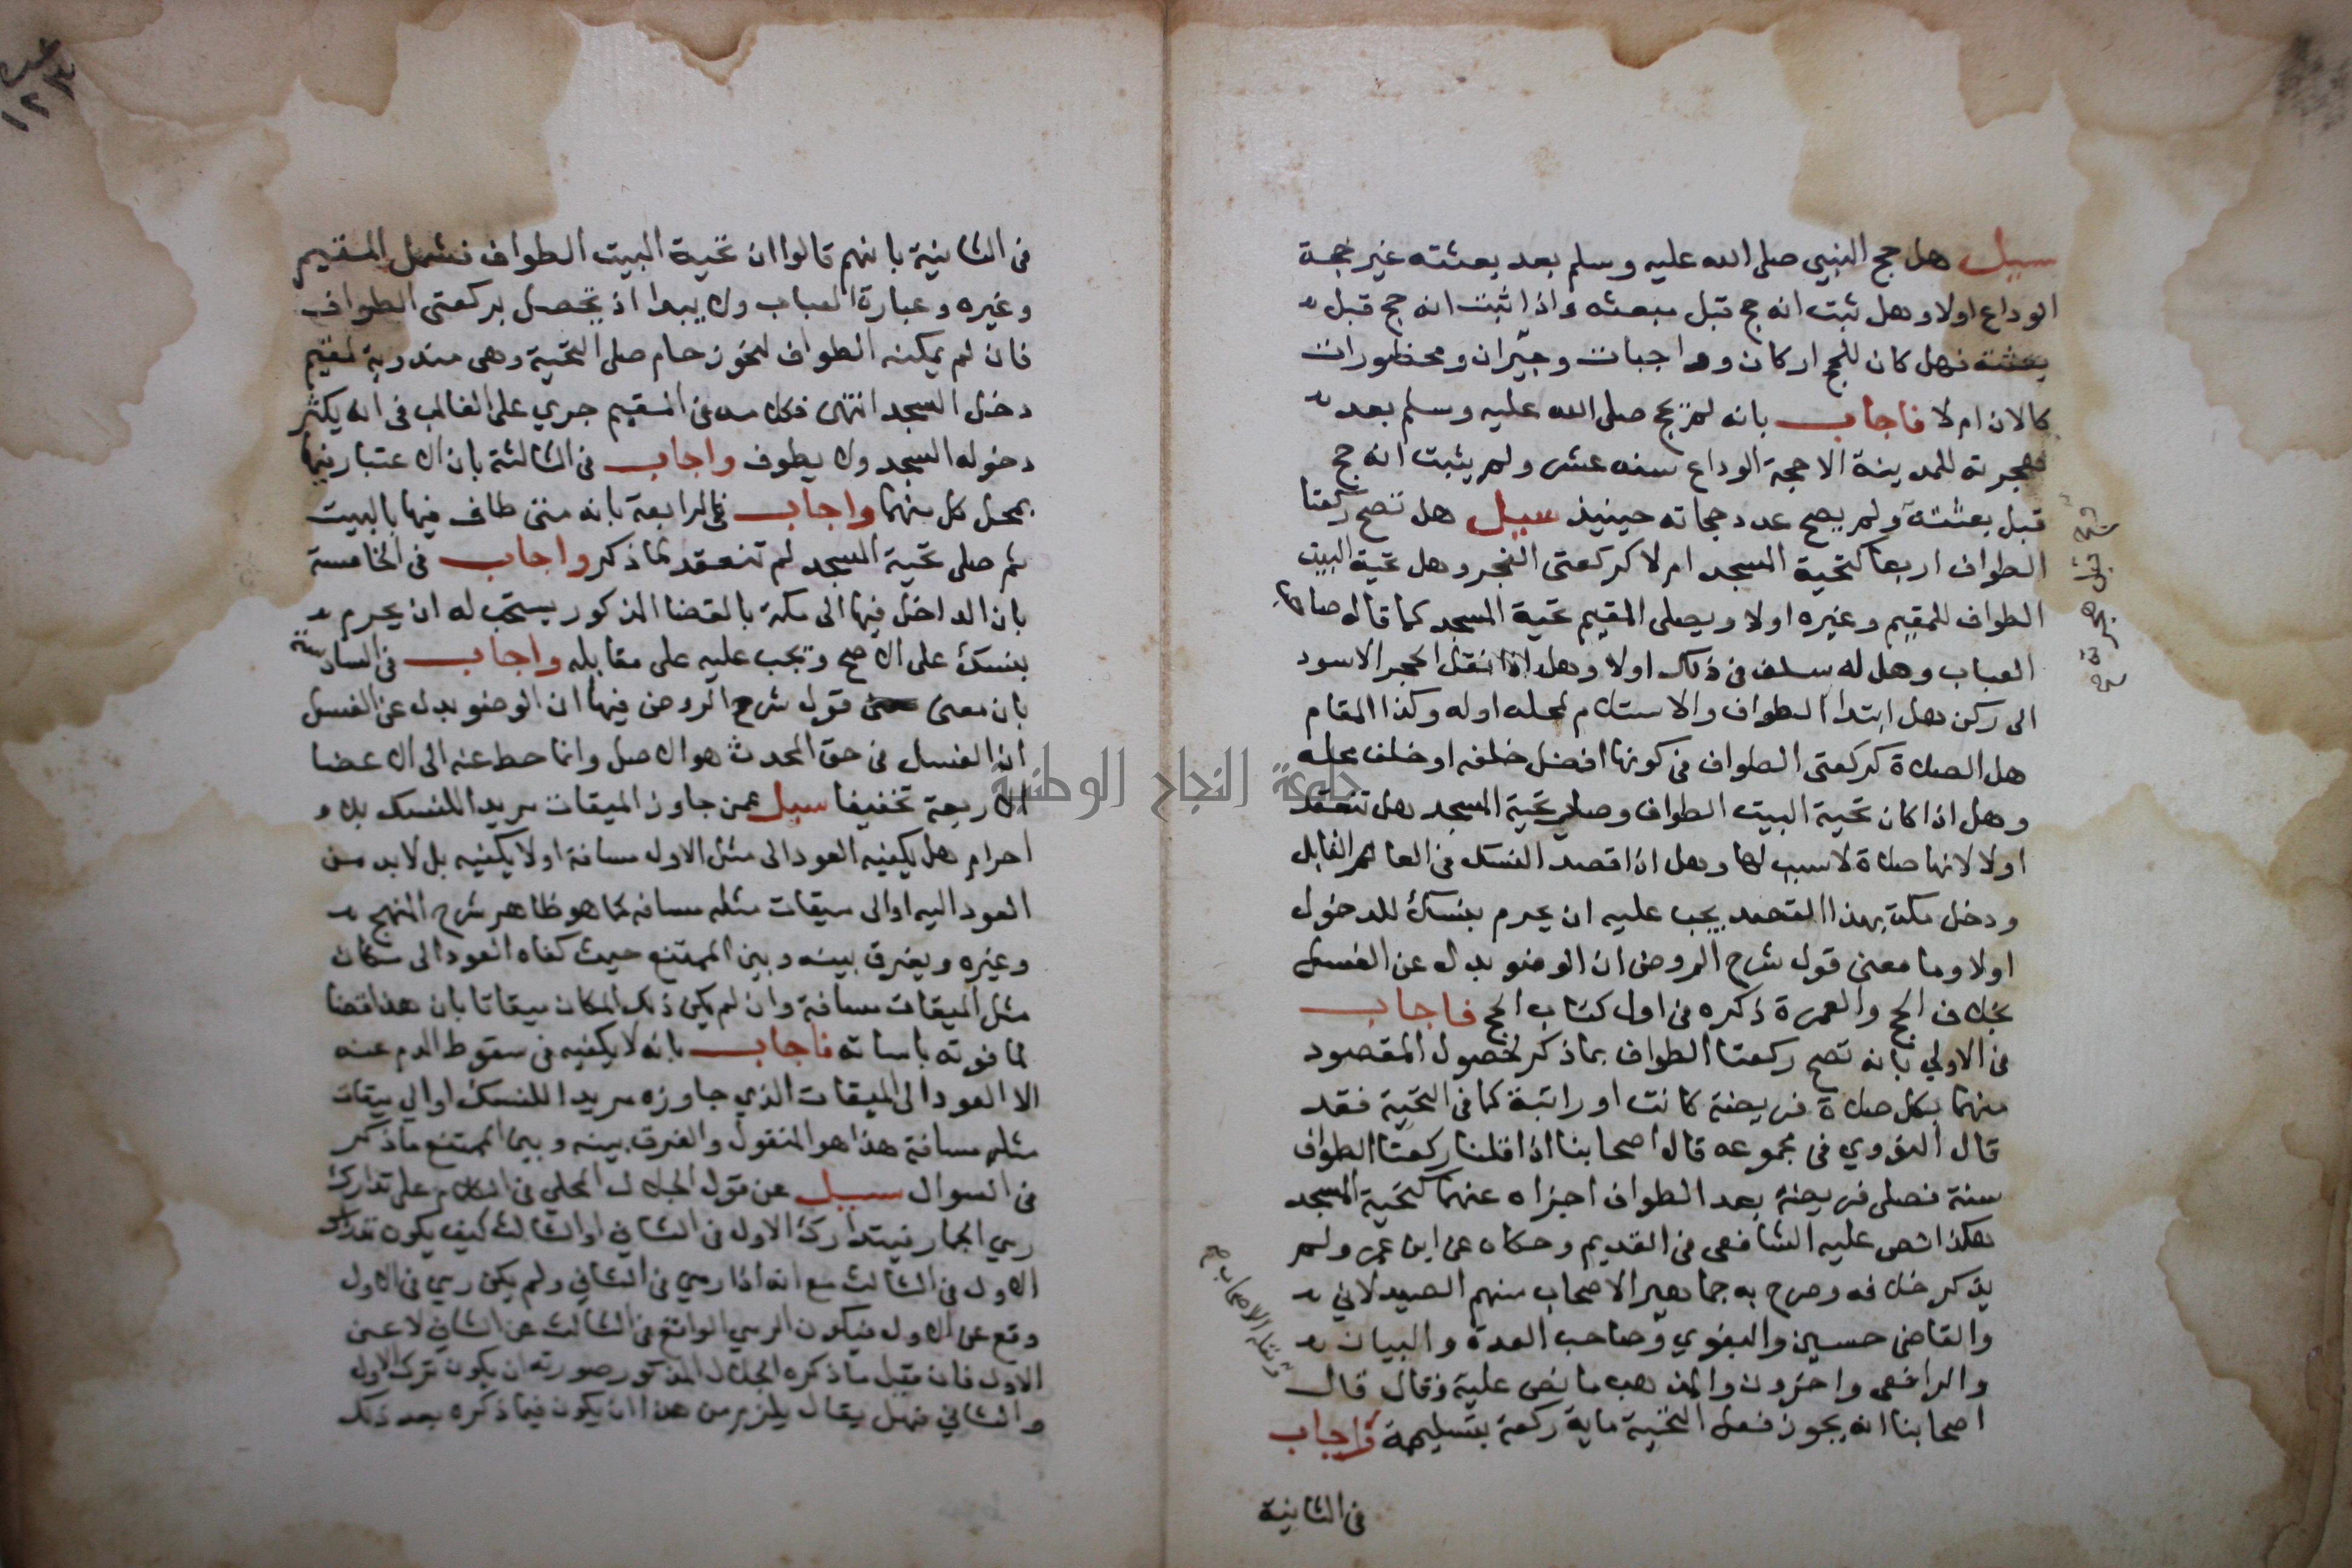 سيل هل حج النبي صلى الله عليه وسلم بعد بعثته غير حجة
الوداع اولا وهل ثبت انه حج قبل مبعثه واذا ثبت انه حج قبل
بعثته فهل كان للحج اركان وواجبات وجبران ومحظورات
كالان ام لا فاجاب بانه لم يحج صلى الله عليه وسلم بعد
هجرته للمدينة الا حجة الوداع سنه عشر ولم يثبت انه حج
قبل بعثته ولم يصح عدد حجاته حينيذ سيل هل تصح ركعتا
الطواف اربعا كتحية المسجد ام لا كركعتي الفجر وهل تحية البيت
الطواف للمقيم وغيره اولا ويصلي المقيم تحية المسجد كما قاله صاحب
العباب وهل له سلف في ذلك اولا وهل اذا نقل الحجر الاسود
الى ركن هل ابتدا الطواف والاستلام لمحله اوله وكذا المقام
هل الصلاة كركعتي الطواف في كونها افضل خلفه او خلف محله
وهل اذا كان تحية البيت الطواف وصلي تحية المسجد هل تنعقد
اولا لانها صلاة لا سبب لها وهل اذا قصد النسك في العام القابل
ودخل مكة بهذا القصد يجب عليه ان يحرم بنسك للدخول
اولا وما معنى قول شرح الروض ان الوضو بدل عن الغسل
بخلاف الحج والعمرة ذكره في اول كتاب الحج فاجاب
في الاولي بانه تصح ركعتا الطواف بما ذكر لحصول المقصود
منهما بكل صلاة فريضة كانت او راتبة كما في التحية فقد
قال النووي في مجموعه قال اصحابنا اذا قلنا ركعتا الطواف
سنة فصلى فريضة بعد الطواف اجزاه عنهما كتحية المسجد
هكذا نص عليه الشافعي في القديم وحكاه عن ابن عمر ولم
يذكر خلافه وصرح به جماهير الاصحاب منهم الصيدلاني
والقاضي حسين والبغوي وصاحب العدة والبيان
والرافعي واخرون والمذهب ما نص عليه وقال قال
اصحابنا انه يجوز فعل التحية ماية ركعة بتسليمة واجاب
في الثانية
قبل هجرته
في الثانية بانهم قالوا ان تحية البيت الطواف فشمل المقيم
وغيره وعبارة العباب ولا يبدا اذ تحصل بركعتي الطواف
فان لم يمكنه الطواف لنحو زحام صلى التحية وهي مندوبة لمقيم
دخل المسجد انتهى فكلامه في المقيم جري على الغالب في انه يكثر
دخوله المسجد ولا يطوف واجاب في الثالثة بان الاعتبار فيها
بمحل كل منهما واجاب في الرابعة بانه متى طاف فيها بالبيت
ثم صلى تحية المسجد لم تنعقد لما ذكر واجاب في الخامسة
بان الداخل فيها الى مكة بالقضا المذكور يستحب له ان يحرم
بنسك على الاصح ويجب عليه على مقابله واجاب في السادسة
بان معنى قول شرح الروض فيها ان الوضو بدل عن الغسل
ان الغسل في حق المحدث هو الاصل وانما حط عنه الى الاعضا
الاربعة تخفيفا سيل عمن جاوز الميقات مريدا للنسك بلا
احرام هل يكفيه العود الى مثل الاول مسافة اولا يكفيه بل لا بد من
العود اليه او الى ميقات مثله مسافه كما هو ظاهر شرح المنهج
وغيره ويفرق بينه وبين المتمتع حيث كفاه العود الى مكان
مثل الميقات مسافة وان لم يكن ذلك المكان ميقاتا بان هذا قضا
لما فوته باساته فاجاب بانه لا يكفيه في سقوط الدم عنه
الا العود الى الميقات الذي جاوزه مريدا للنسك او الي ميقات
مثله مسافة هذا هو المنقول والفرق بينه وبين المتمتع ما ذكر
في السوال سيل عن قول الجلال المحلي في الكلام على تدارك
رمي الجمار فيتدارك الاول في الثاني او الثالث كيف يكون تدارك
الاول في الثالث مع انه اذا رمي في الثاني ولم يكن رمي في الاول
وقع عن الاول فيكون الرمي الواقع في الثالث عن الثاني لا عن
الاول فان قيل ما ذكره الجلال المذكور صورته ان يكون ترك الاول
والثاني فهل يقال يلزم من هذا ان يكون فيما ذكره بعد ذلك
جامعة النجاح الوطنية
١٢٣